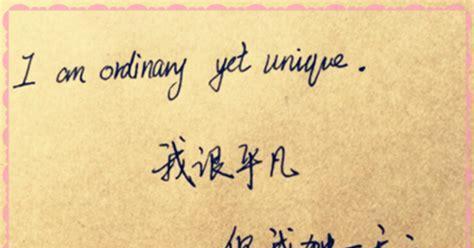 I am ordinary yet unique.
我很平凡
但我独一无